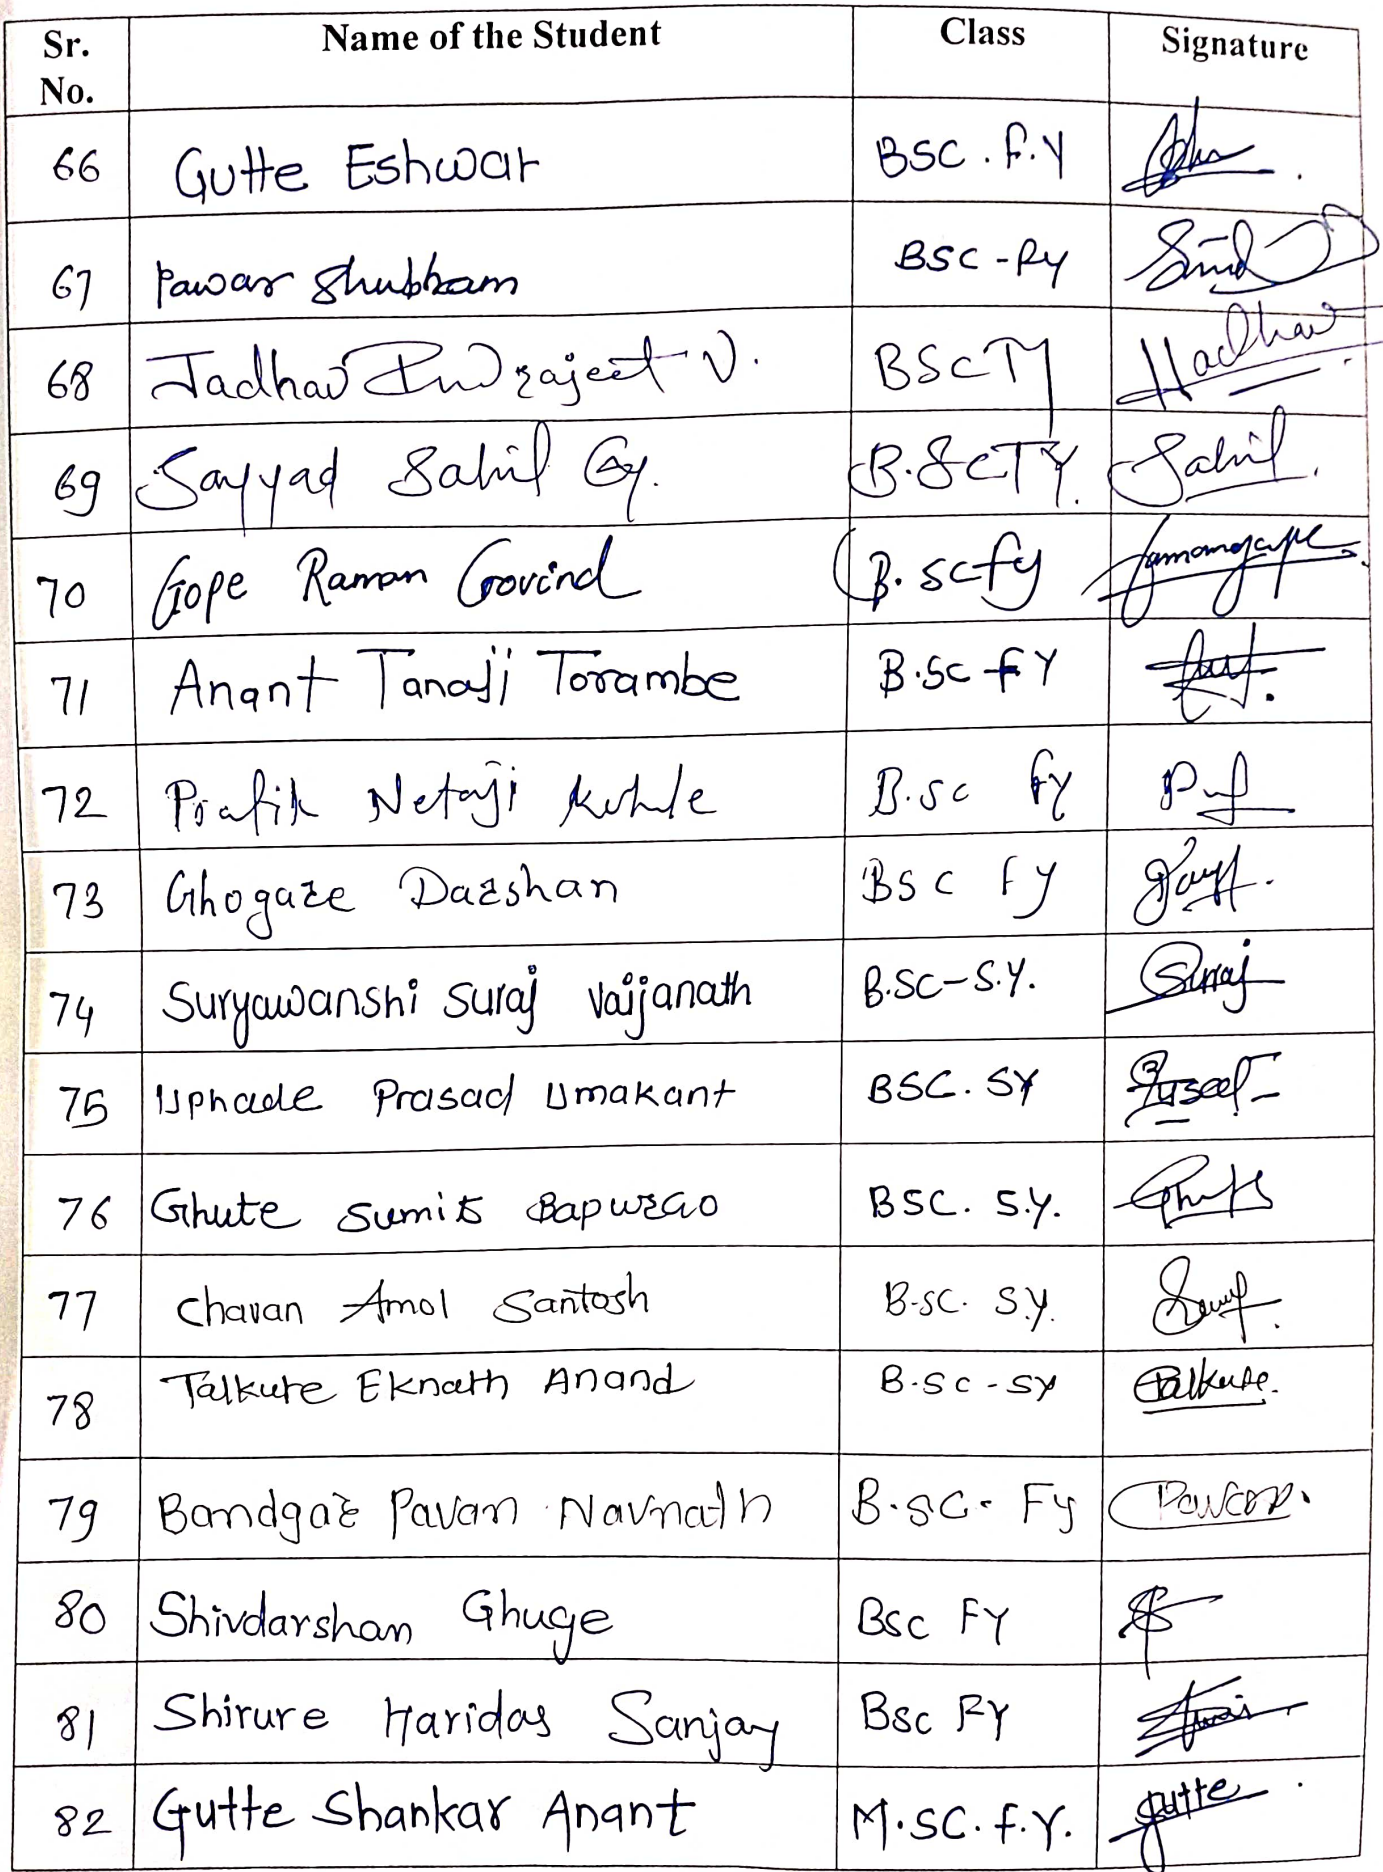 Sr. No. Name of the Student Class Signature
66 Gutte Eshwar BSC . F.Y
67 Pawar Shubham BSC - Fy
68 Jadhav Indrajeet V. BSc TY Hadhav
69 Sayyad Sahil Gy. B.Sc TY. Sahil.
70 Gope Raman Govind B. scfy Ramangope
71 Anant Tanaji Torambe B.sc FY
72 Netaji B.sc fy
73 Ghogare Darshan BSC fy
74 Suryawanshi Suraj Vaijanath B.SC-S.Y. Suraj
75 Uphade Prasad Umakant BSC. SY
76 Ghute Sumit Bapurao BSC. S.Y.
77 Chavan Amol Santosh B-SC. S.Y.
78 Talkute Eknath Anand B.SC-SY Talkute.
79 Bandgar Pavan Navnath B.SC. Fy
80 Shivdarshan Ghuge Bsc FY
81 Shirure Haridas Sanjay Bsc FY
82 Gutte Shankar Anant M.SC. F.Y. gutte